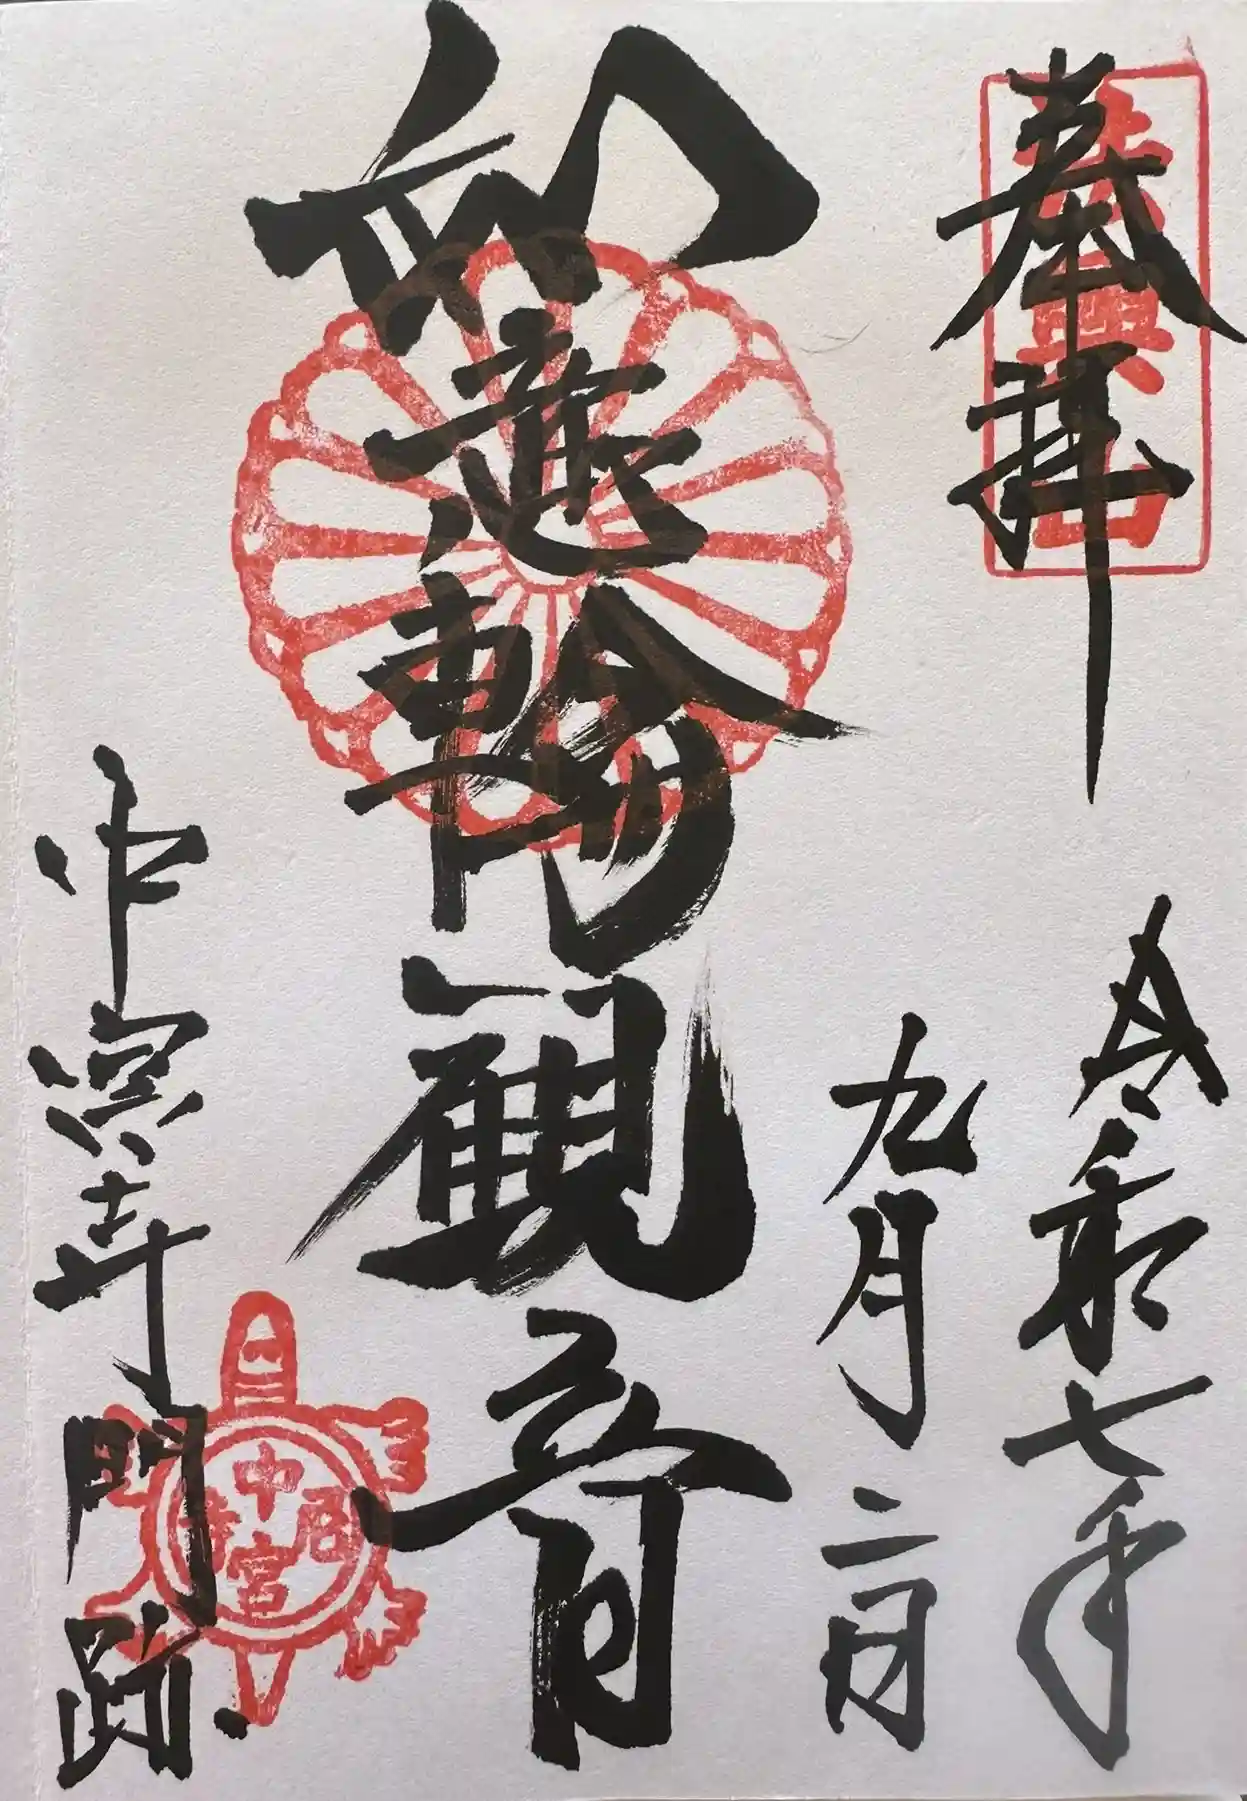 奉拝
法興山
令和七年
九月二日
如意輪観音
中宮寺門跡
中宮
寺